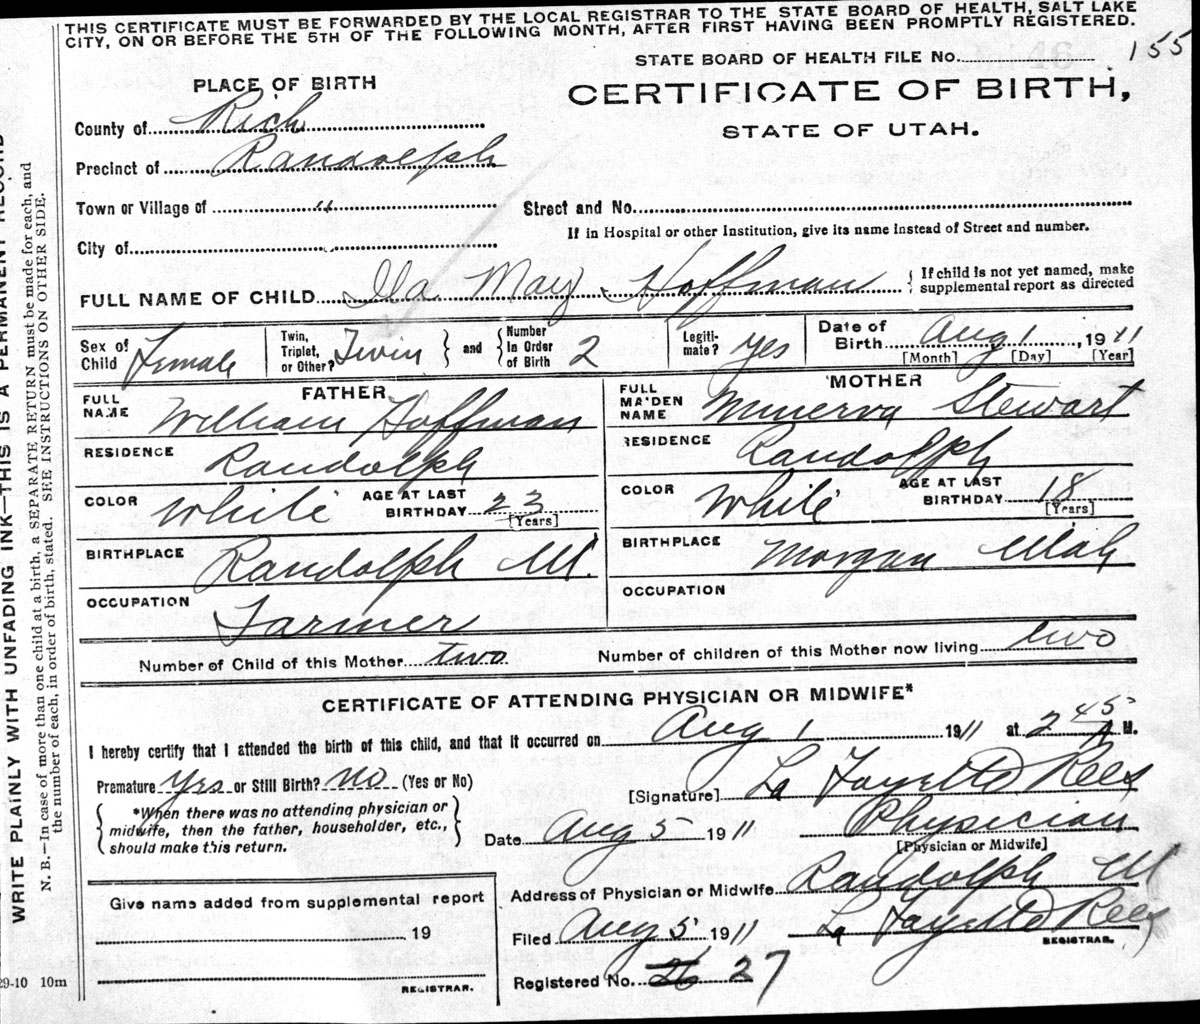 THIS CERTIFICATE MUST BE FORWARDED BY THE LOCAL REGISTRAR TO THE STATE BOARD OF HEALTH, SALT LAKE
CITY, ON OR BEFORE THE 5TH OF THE FOLLOWING MONTH, AFTER FIRST HAVING BEEN PROMPTLY REGISTERED.
STATE BOARD OF HEALTH FILE No. 155
PLACE OF BIRTH
CERTIFICATE OF BIRTH,
STATE OF UTAH.
County of Rich
Precinct of Randolph
Town or Village of "
Street and No.
City of
If in Hospital or other Institution, give its name instead of Street and number.
FULL NAME OF CHILD Ila May Hoffman { If child is not yet named, make supplemental report as directed
Sex of Child Female
Twin, Triplet, or Other? Twin } and { Number in Order of Birth 2
Legiti-mate? yes
Date of Birth Aug 1, 1911
[Month] [Day] [Year]
FATHER
FULL NAME William Hoffman
RESIDENCE Randolph
COLOR White AGE AT LAST BIRTHDAY 23
[Years]
BIRTHPLACE Randolph Ut.
OCCUPATION Farmer
MOTHER
FULL MAIDEN NAME Minerva Stewart
RESIDENCE Randolph
COLOR White AGE AT LAST BIRTHDAY 18
[Years]
BIRTHPLACE Morgan Utah
OCCUPATION
Number of Child of this Mother two Number of children of this Mother now living two
CERTIFICATE OF ATTENDING PHYSICIAN OR MIDWIFE*
I hereby certify that I attended the birth of this child, and that it occurred on Aug 1 1911 at 2 45 A M.
Premature yes or Still Birth? no (Yes or No)
[Signature] La Fayette Rees
{ *When there was no attending physician or
midwife, then the father, householder, etc.,
should make this return. }
Date Aug 5 1911 Physician
[Physician or Midwife]
Address of Physician or Midwife Randolph Ut
Give name added from supplemental report
19
REGISTRAR.
Filed Aug 5 1911 La Fayette Rees
REGISTRAR.
Registered No. 26 27
29-10 10m
WRITE PLAINLY WITH UNFADING INK—THIS IS A PERMANENT RECORD
N. B.—In case of more than one child at a birth, a SEPARATE RETURN must be made for each, and
the number of each, in order of birth, stated. SEE INSTRUCTIONS ON OTHER SIDE.